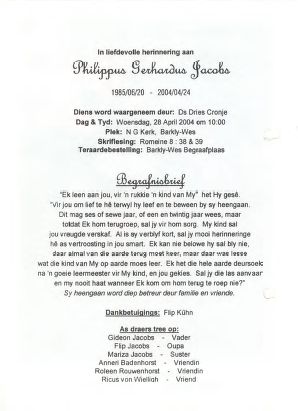 In liefdevolle herinnering aan
Philippus Gerhardus Jacobs
1985/06/20 - 2004/04/24
Diens word waargeneem deur: Ds Dries Cronje
Dag & Tyd: Woensdag, 28 April 2004 om 10:00
Plek: N G Kerk, Barkly-Wes
Skriflesing: Romeine 8 : 38 & 39
Teraardebestelling: Barkly-Wes Begraafplaas
Begrafnisbrief
"Ek leen aan jou, vir 'n rukkie 'n kind van My" het Hy gesê.
"Vir jou om lief te hê terwyl hy leef en te beween by sy heengaan.
Dit mag ses of sewe jaar, of een en twintig jaar wees, maar
totdat Ek hom terugroep, sal jy vir hom sorg. My kind sal
jou vreugde verskaf. Al is sy verblyf kort, sal jy mooi herinneringe
hê as vertroosting in jou smart. Ek kan nie belowe hy sal bly nie,
daar almal van die aarde terug moet keer, maar daar was lesse
wat die kind van My op aarde moes leer. Ek het die hele aarde deursoek
na 'n goeie leermeester vir My kind, en jou gekies. Sal jy die las aanvaar
en my nooit haat wanneer Ek kom om hom terug te roep nie?"
Sy heengaan word diep betreur deur familie en vriende.
Dankbetuigings: Flip Kühn
As draers tree op:
Gideon Jacobs - Vader
Flip Jacobs - Oupa
Mariza Jacobs - Suster
Anneri Badenhorst - Vriendin
Roleen Rouwenhorst - Vriendin
Ricus von Wielligh - Vriend